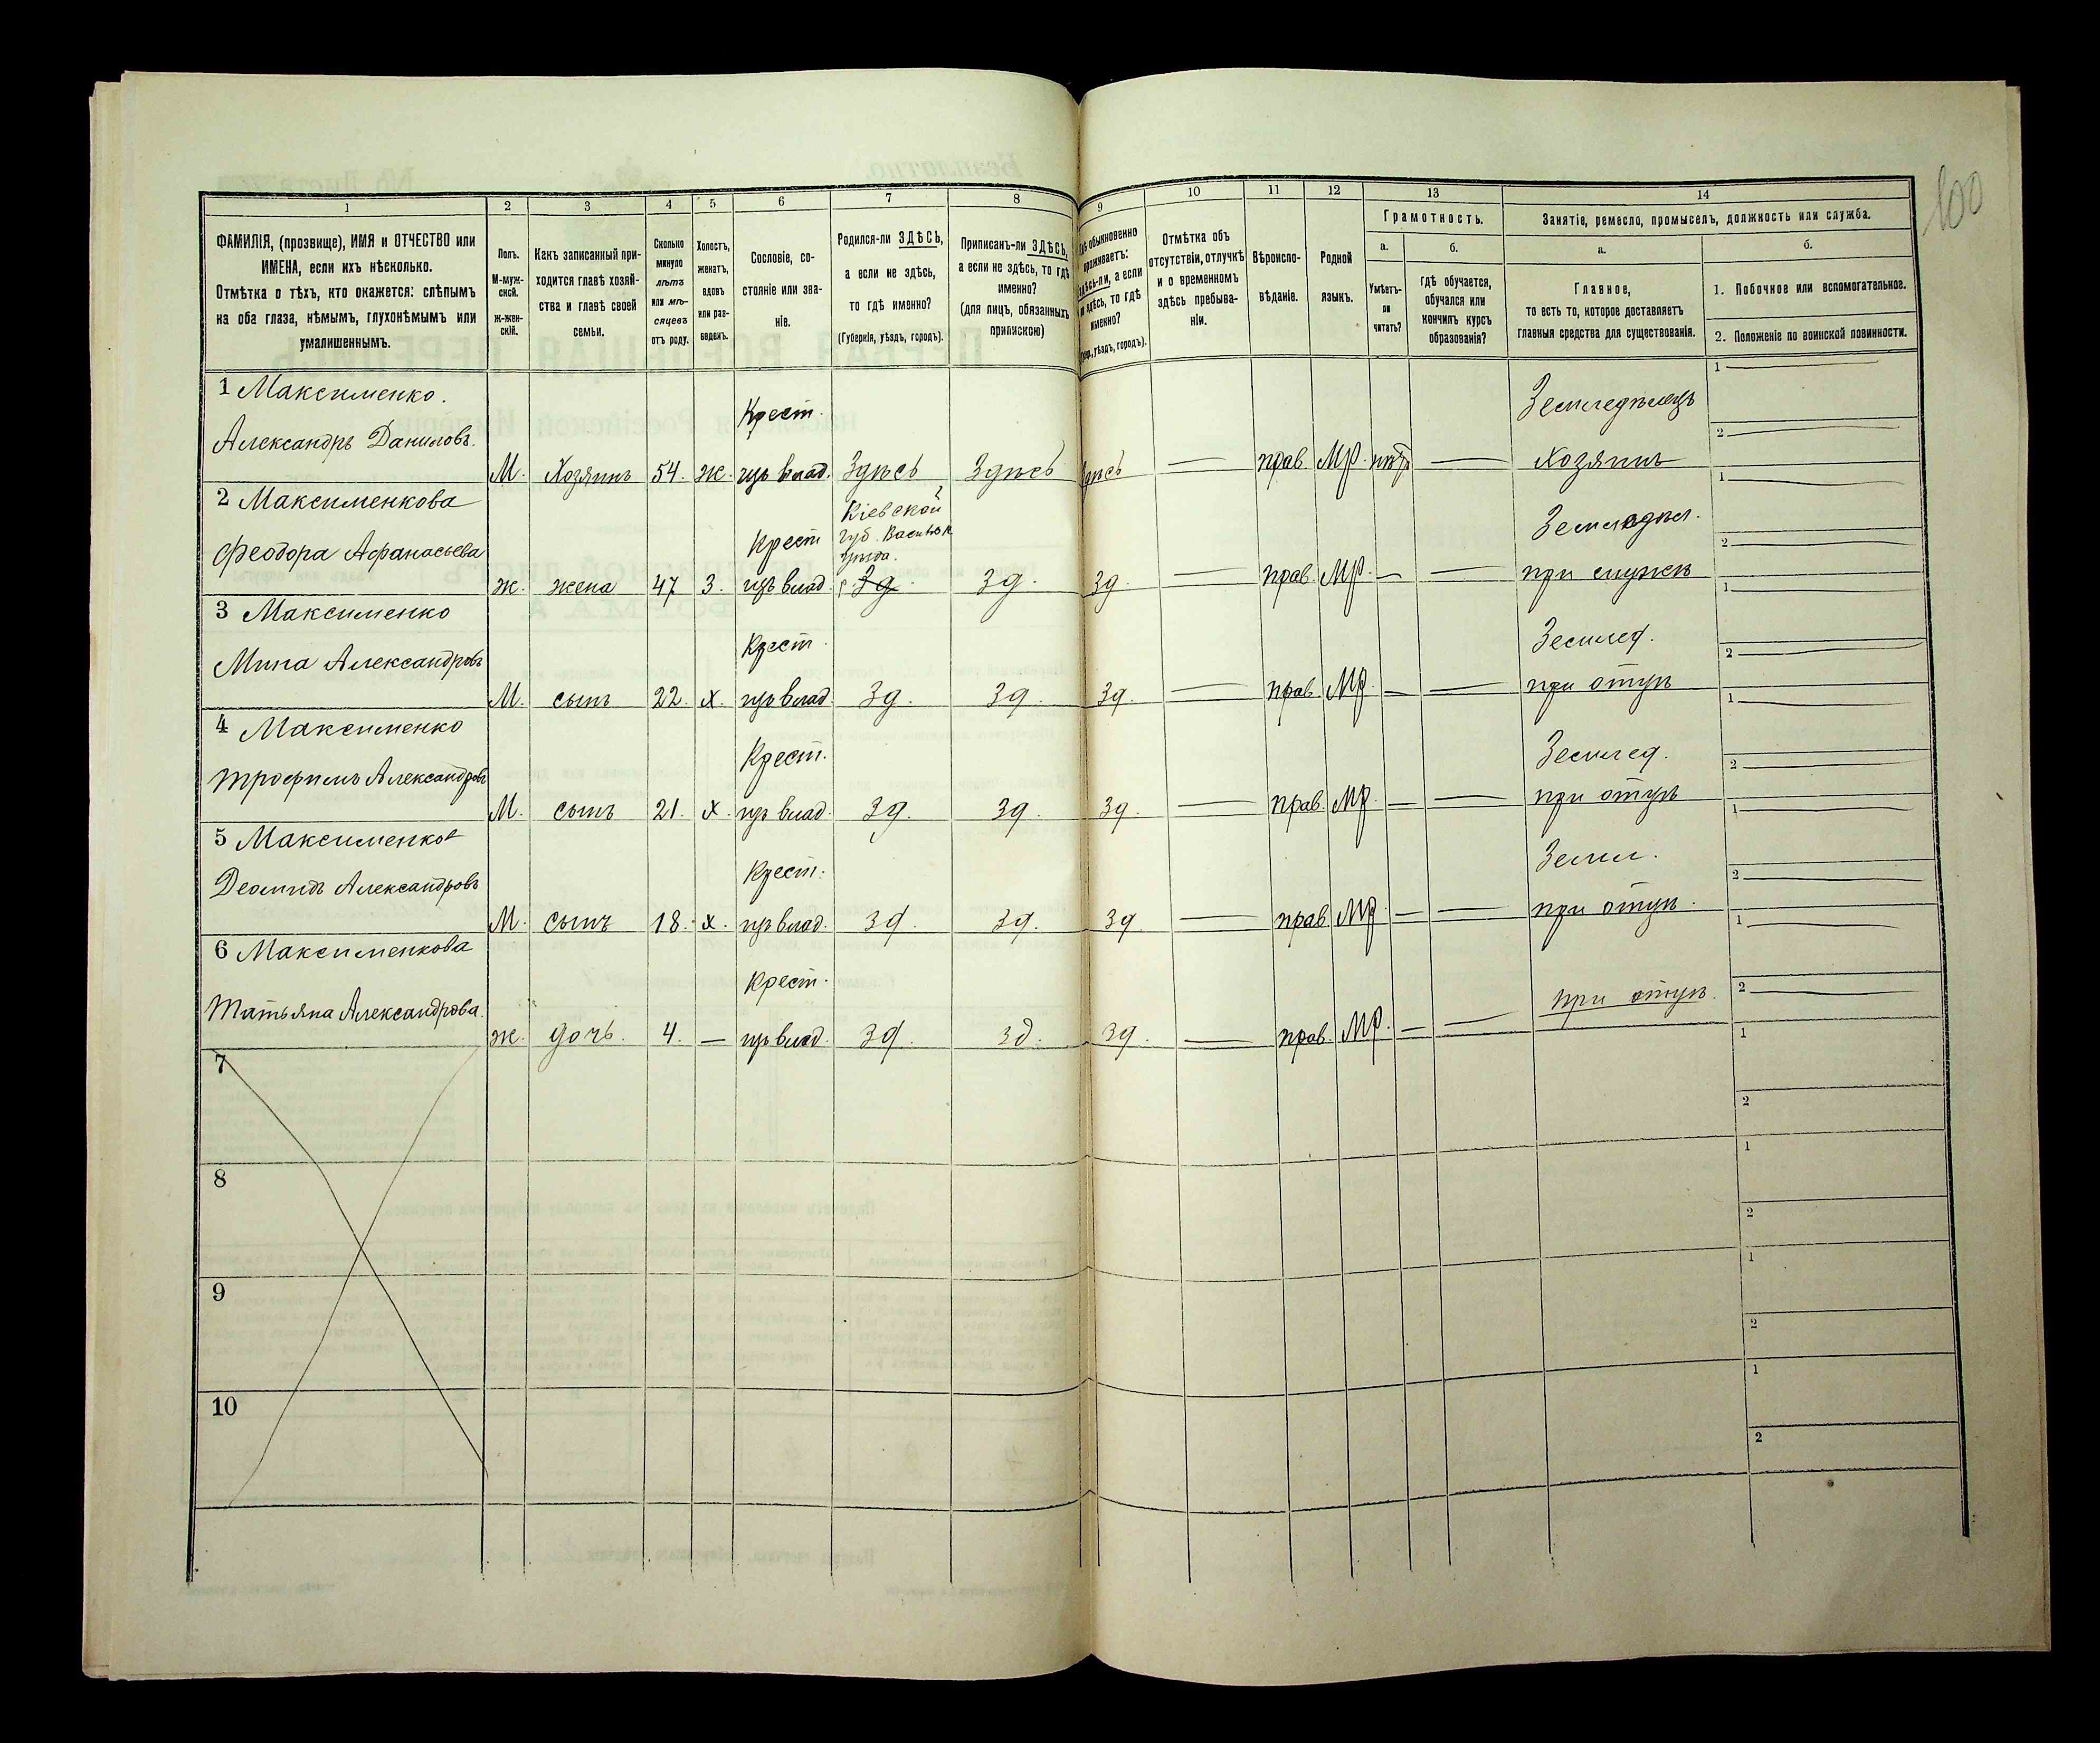 100
1 2 3 4 5 6 7 8 9 10 11 12 13 14
ФАМИЛІЯ, (прозвище), ИМЯ и ОТЧЕСТВО или
ИМЕНА, если ихъ нѣсколько.
Отмѣтка о тѣхъ, кто окажется: слѣпымъ
на оба глаза, нѣмымъ, глухонѣмымъ или
умалишеннымъ.
Полъ.
М-муж-
ской.
Ж-жен-
скій.
Какъ записанный при-
ходится главѣ хозяй-
ства и главѣ своей
семьи.
Сколько
минуло
лѣтъ
или мѣ-
сяцевъ
отъ роду.
Холостъ,
женатъ,
вдовъ
или раз-
веденъ.
Сословіе, со-
стояніе или зва-
ніе.
Родился-ли ЗДѢСЬ,
а если не здѣсь,
то гдѣ именно?
(Губернія, уѣздъ, городъ).
Приписанъ-ли ЗДѢСЬ,
а если не здѣсь, то гдѣ
именно?
(для лицъ, обязанныхъ
припискою)
обыкновенно
проживаетъ:
здѣсь-ли, а если
не здѣсь, то гдѣ
именно?
уѣздъ, городъ).
Отмѣтка объ
отсутствіи, отлучкѣ
и о временномъ
здѣсь пребыва-
ніи.
Вѣроиспо-
вѣданіе.
Родной
языкъ.
Грамотность.
а. б.
Умѣетъ-
ли
читать?
Гдѣ обучается,
обучался или
кончилъ курсъ
образованія?
Занятіе, ремесло, промыселъ, должность или служба.
а. б.
Главное,
то есть то, которое доставляетъ
главныя средства для существованія.
1. Побочное или вспомогательное.
2. Положеніе по воинской повинности.
1 Максименко. Крест. Земледѣлецъ 1 —
Александръ Даниловъ. 2 —
М. Хозяинъ 54. ж. изъ влад. Здѣсь Здѣсь Здѣсь — прав. МР. нѣтъ — хозяинъ
2 Максименкова Крест Кіевской Земледѣл. 1 —
Феодора Афанасьева губ. Васильк 2 —
уѣзда.
ж. жена 47 З. изъ влад. Зд. Зд. Зд. — прав. МР. — — при мужѣ
3 Максименко Крест. Землед. 1 —
Мина Александровъ 2 —
М. сынъ 22. х. изъ влад. Зд. Зд. Зд. — прав. МР. — — при отцѣ
4 Максименко Крест. Землед. 1 —
Трофимъ Александровъ 2 —
М. сынъ 21. х. изъ влад. Зд. Зд. Зд. — прав. МР. — — при отцѣ
5 Максименко Крест. Земл. 1 —
Деомидъ Александровъ 2 —
М. сынъ 18. х. изъ влад. Зд. Зд. Зд. — прав. МР. — — при отцѣ.
6 Максименкова Крест. 1 —
Татьяна Александрова. при отцѣ. 2 —
ж. дочь. 4. — изъ влад. Зд. Зд. Зд. — прав. МР. — —
7 1
2
8 1
2
9 1
2
10 1
2